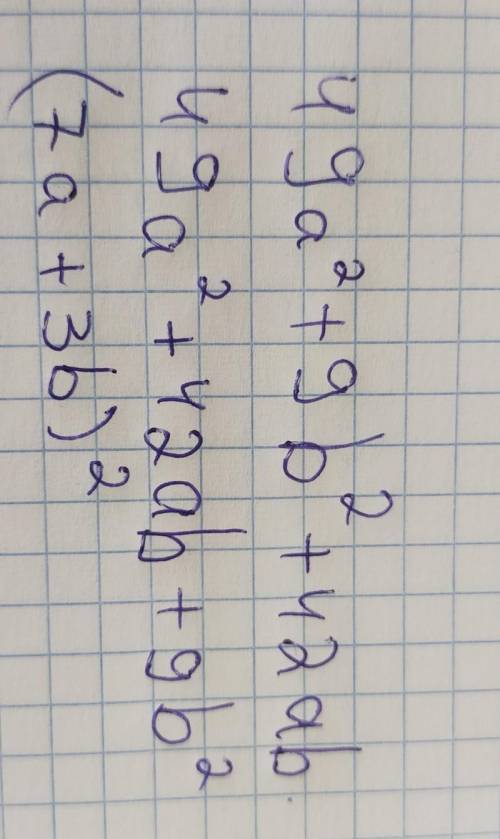 49a² + 9b² + 42ab
49a² + 42ab + 9b²
(7a + 3b)²